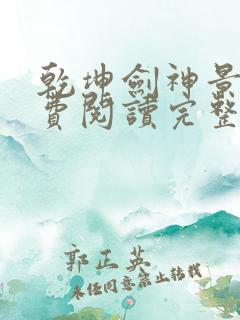 乾坤劍神景
費閱讀完整
郭正英
未經同意禁止轉載